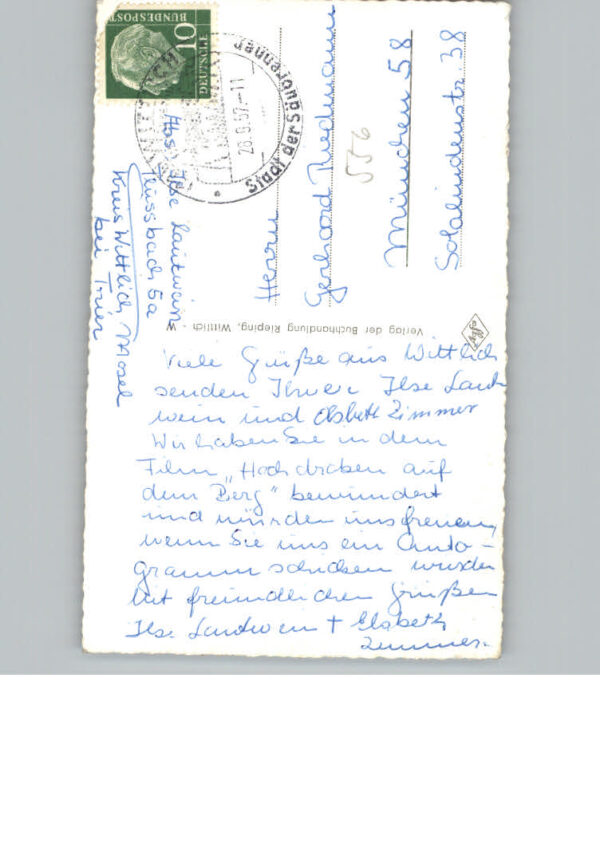 DEUTSCHE
BUNDESPOST
10
WITTLICH
26.9.57-11
Stadt der Säubrenner
Abs. Ilse Lautwein
Flussbach 5a
Kreis Wittlich Mosel
bei Trier
Herrn
Gerhard Riedmann
München 58
Sofalindenstr. 38
556
Verlag der Buchhandlung Rieping, Wittlich - W
Viele Grüße aus Wittlich
senden Ihnen Ilse Laut
wein und Elsbeth Zimmer
Wir haben Sie in dem
Film „Hoch droben auf
dem Berg" bewundert
und würden uns freuen,
wenn Sie uns ein Auto-
gramm schicken würden
Mit freundlichen Grüßen
Ilse Lautwein + Elsbeth
Zimmer.